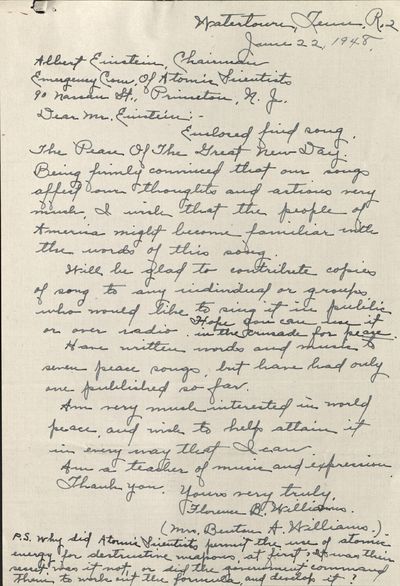 Watertown, Tenn., R.2
June 22, 1948.
Albert Einstein, Chairman
Emergency Com. Of Atomic Scientists
90 Nassau St., Princeton, N. J.
Dear Mr. Einstein:-
Enclosed find song,
The Peace Of The Great New Day.
Being firmly convinced that our songs
affect our thoughts and actions very
much, I wish that the people of
America might become familiar with
the words of this song.
Will be glad to contribute copies
of song to any individual or groups
who would like to sing it in public
or over radio. Hope you can use it
in the crusade for peace.
Have written words and music to
seven peace songs, but have had only
one published so far.
Am very much interested in world
peace, and wish to help attain it
in every way that I can.
Am a teacher of music and expression.
Thank you. Yours very truly,
Florence B. Williams.
(Mrs. Benton A. Williams.)
P.S. Why did Atomic Scientists permit the use of atomic
energy for destructive weapons, at first, It was their
secret was it not, or did the government command
them to work out the formula and develop it?